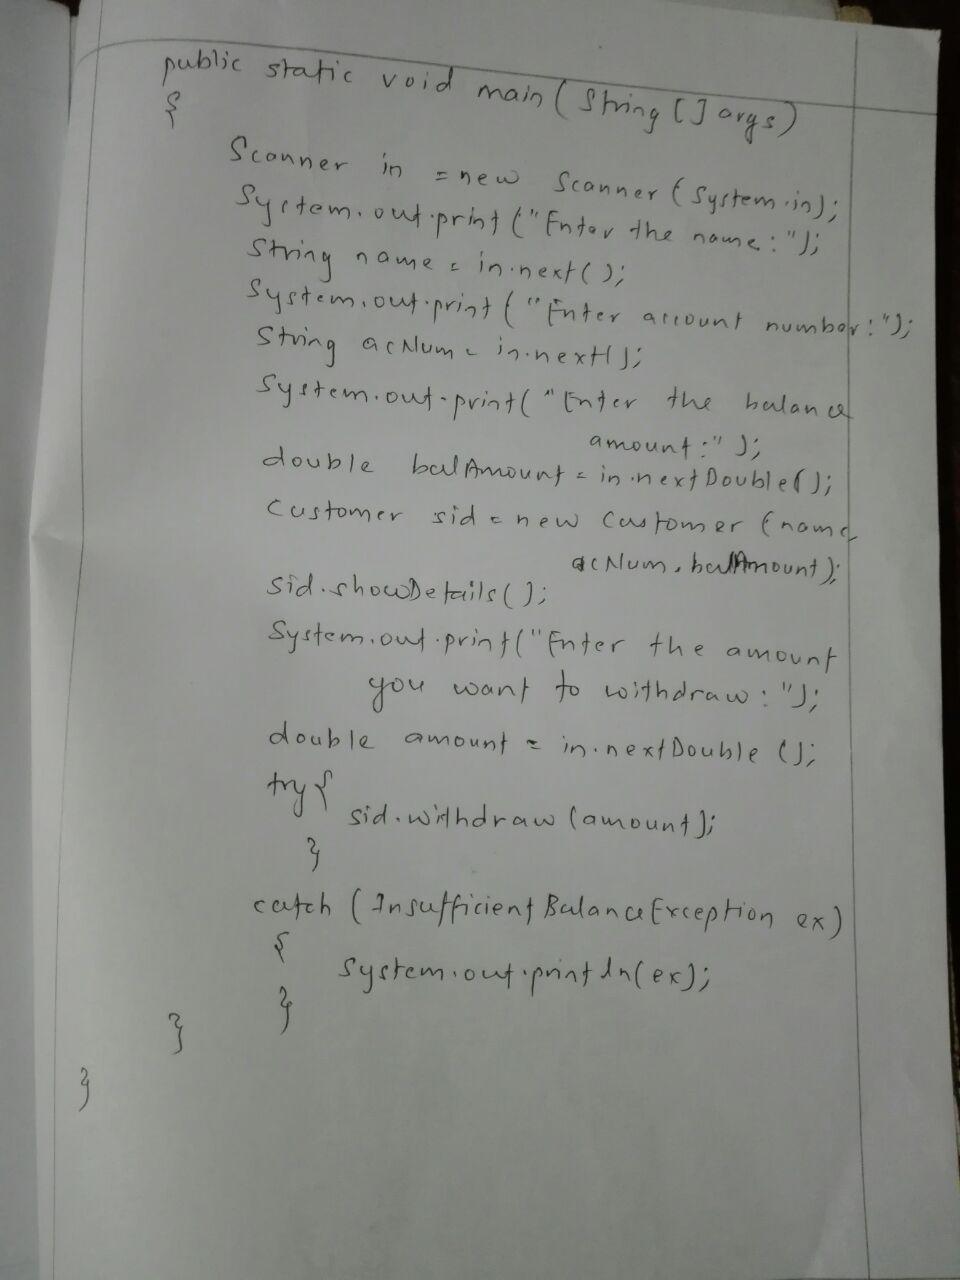 public static void main(String[] args)
{
Scanner in = new Scanner(System.in);
System.out.print("Enter the name:");
String name = in.next();
System.out.print("Enter account number:");
String acNum = in.next();
System.out.print("Enter the balance
amount:");
double balAmount = in.nextDouble();
Customer sid = new Customer(name,
acNum, balAmount);
sid.showDetails();
System.out.print("Enter the amount
you want to withdraw:");
double amount = in.nextDouble();
try{
sid.withdraw(amount);
}
catch (InsufficientBalanceException ex)
{
System.out.println(ex);
}
}
}